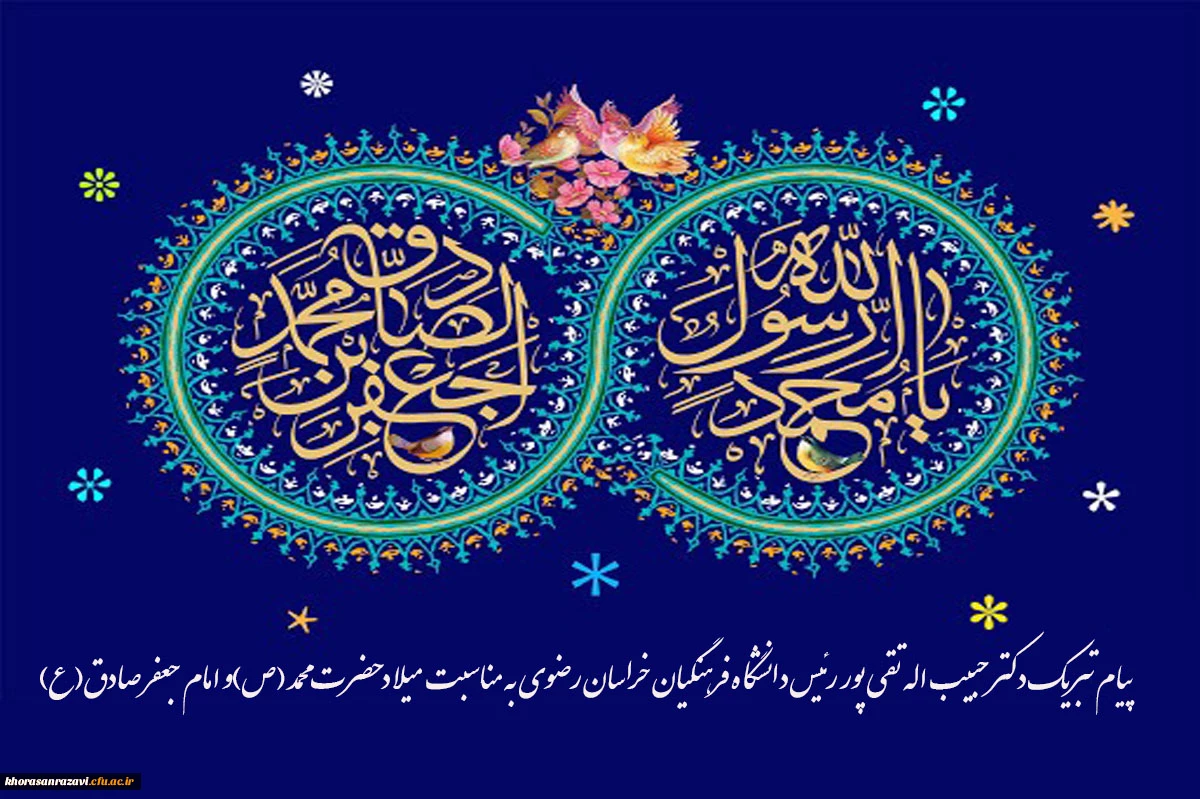 یا محمد رسول الله
جعفر بن محمد الصادق
پیام تبریک دکتر حبیب اله تقی پور رئیس دانشگاه فرهنگیان خراسان رضوی به مناسبت میلاد حضرت محمد (ص) و امام جعفر صادق (ع)
khorasanrazavi.cfu.ac.ir